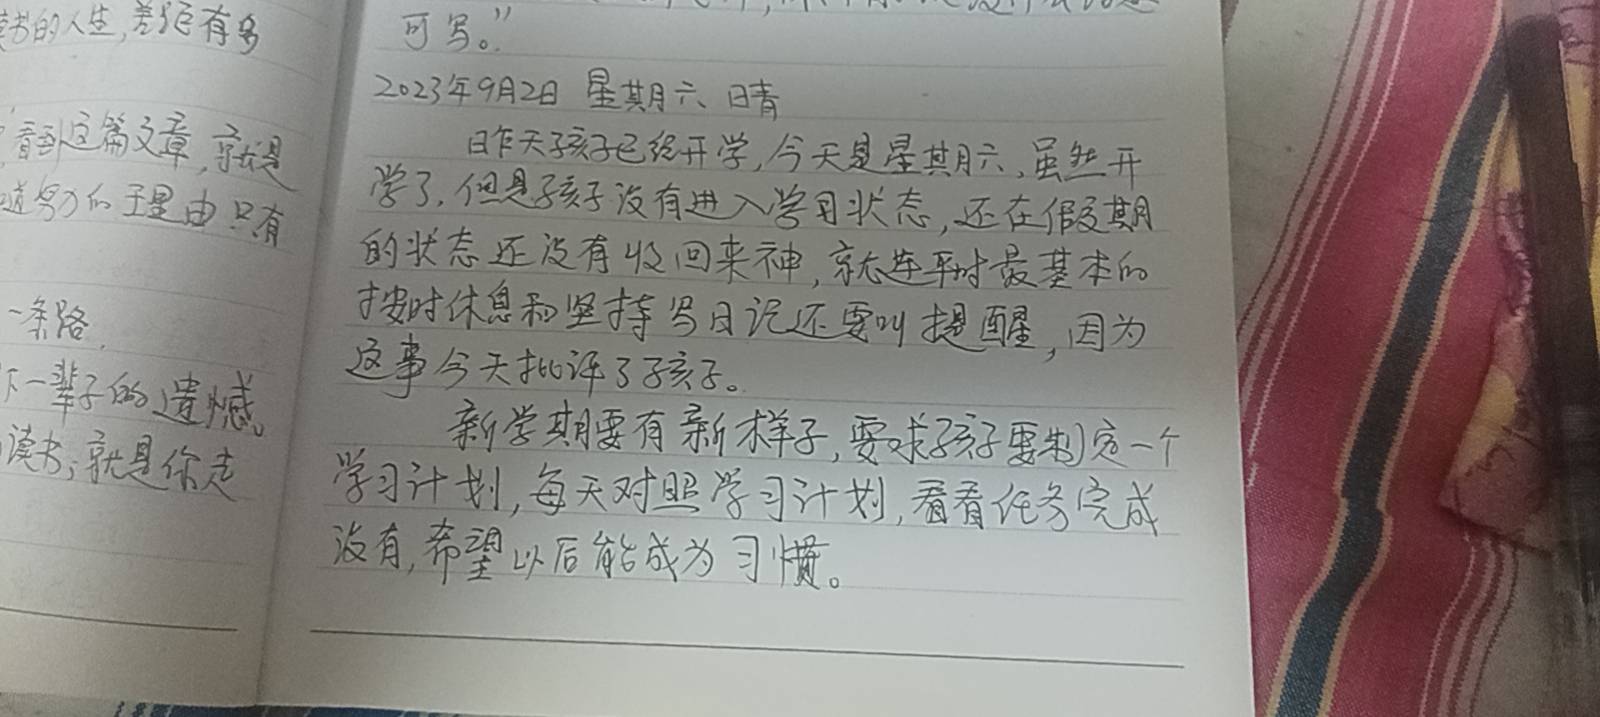 读书的人生,差距有多
看到这篇文章,就是
道努力的理由只有
一条路
下一辈子的遗憾。
读书,就是你走
可写。”
2023年9月2日 星期六、晴
昨天孩子已经开学,今天是星期六、虽然开
学了,但是孩子没有进入学习状态,还在假期
的状态还没有收回来神,就连平时最基本的
按时休息和坚持写日记还要叫提醒,因为
这事今天批评了孩子。
新学期要有新样子,要求孩子要制定一个
学习计划,每天对照学习计划,看看任务完成
没有,希望以后能成为习惯。